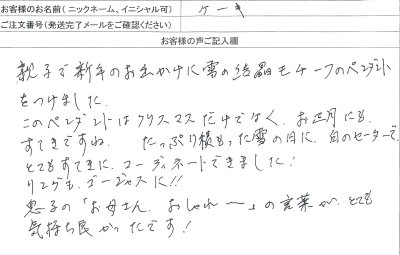 お客様のお名前(ニックネーム、イニシャル可) ケーキ
ご注文番号(発送完了メールをご確認ください)
お客様の声ご記入欄
親子で新年のお出かけに雪の結晶モチーフのペンダント
をつけました.
このペンダントはクリスマスだけでなく、お正月にも
すてきですね. たっぷり積もった雪の日に、白のセーターで、
とてもすてきに、コーディネートできました!
リングも、ゴージャスに!!
息子の「お母さん、おしゃれ〜」の言葉が、とても
気持ち良かったです!